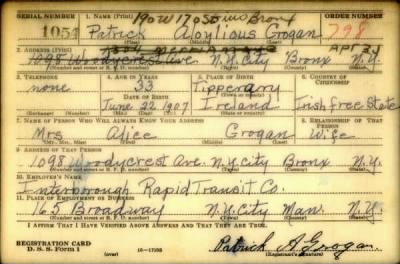 SERIAL NUMBER 1. NAME (Print) ORDER NUMBER
190 W 170 St Bronx
1054 Patrick Aloylious Grogan 798
(First) (Middle) (Last)
2. ADDRESS (Print)
Apt 34
1098 Woodycrest Ave. N.Y. City Bronx N.Y.
(Number and street or R. F. D. number) (Town) (County) (State)
3. TELEPHONE 4. AGE IN YEARS 5. PLACE OF BIRTH 6. COUNTRY OF CITIZENSHIP
none 33 Tipperary
DATE OF BIRTH
June 22 1907 Ireland Irish Free State
(Exchange) (Number) (Mo.) (Day) (Yr.) (State or county)
7. NAME OF PERSON WHO WILL ALWAYS KNOW YOUR ADDRESS 8. RELATIONSHIP OF THAT PERSON
Mrs Alice Grogan Wife
(Mr., Mrs., Miss) (First) (Middle) (Last)
9. ADDRESS OF THAT PERSON
1098 Woodycrest Ave. N.Y. City Bronx N.Y.
(Number and street or R. F. D. number) (Town) (County) (State)
10. EMPLOYER'S NAME
Interborough Rapid Transit Co.
11. PLACE OF EMPLOYMENT OR BUSINESS
165 Broadway N.Y. City Man. N.Y.
(Number and street or R. F. D. number) (Town) (County) (State)
I AFFIRM THAT I HAVE VERIFIED ABOVE ANSWERS AND THAT THEY ARE TRUE.
REGISTRATION CARD
D. S. S. Form 1 (over) 16—17105 Patrick A Grogan
(Registrant's signature)